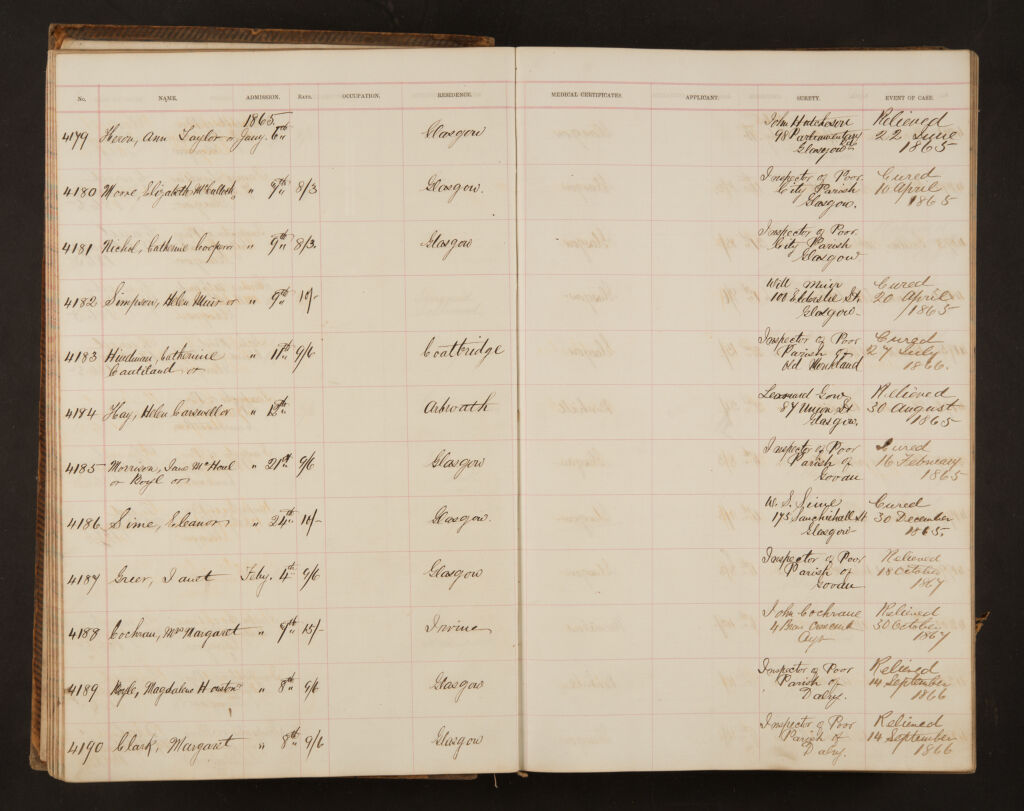 No. NAME. ADMISSION. RATE. OCCUPATION. RESIDENCE. MEDICAL CERTIFICATES. APPLICANT. SURETY. EVENT OF CASE.
1865.
4179 Heron, Ann Taylor or Jany. 6th Glasgow John Hutcheson Relieved
98 Parliamentary 22 June
Glasgow 1865
4180 Elizabeth " 9th 8/3 Glasgow. Inspector of Poor Cured
City Parish 10 April
Glasgow. 1865
4181 Nichol, Catherine Cooper or " 9th 8/3 Glasgow Inspector of Poor
City Parish
Glasgow
4182 Simpson, Helen Muir or " 9th 10/- Will Muir Cured
Elderslie St. 20 April
Glasgow 1865
4183 Hindman, Catherine " 11th 9/6 Coatbridge Inspector of Poor Cured
or Parish of 27 July
Old Monkland 1866.
4184 Hay, Helen Carswell or " 12th Leonard Gow Relieved
87 Union St 30 August
Glasgow. 1865
4185 Morrison, Jane " 21st 9/6 Glasgow Inspector of Poor Cured
or Boyl or Parish of 16 February
Govan 1865
4186 Sime, Eleanor " 24th 10/- Glasgow. W. S. Sime Cured
175 Sauchiehall St 30 December
Glasgow 1865.
4187 Greer, Janet Feby. 4th 9/6 Glasgow Inspector of Poor Relieved
Parish of 18 October
Govan 1867
4188 Cochran, Mrs Margaret " 7th 15/- Irvine John Cochrane Relieved
4 Crescent 30 October
Ayr 1867
4189 Boyle, Magdalene Houston " 8th 9/6 Glasgow Inspector of Poor Relieved
Parish of 14 September
Dalry. 1866
4190 Clark, Margaret " 8th 9/6 Glasgow Inspector of Poor Relieved
Parish of 14 September
Dalry. 1866